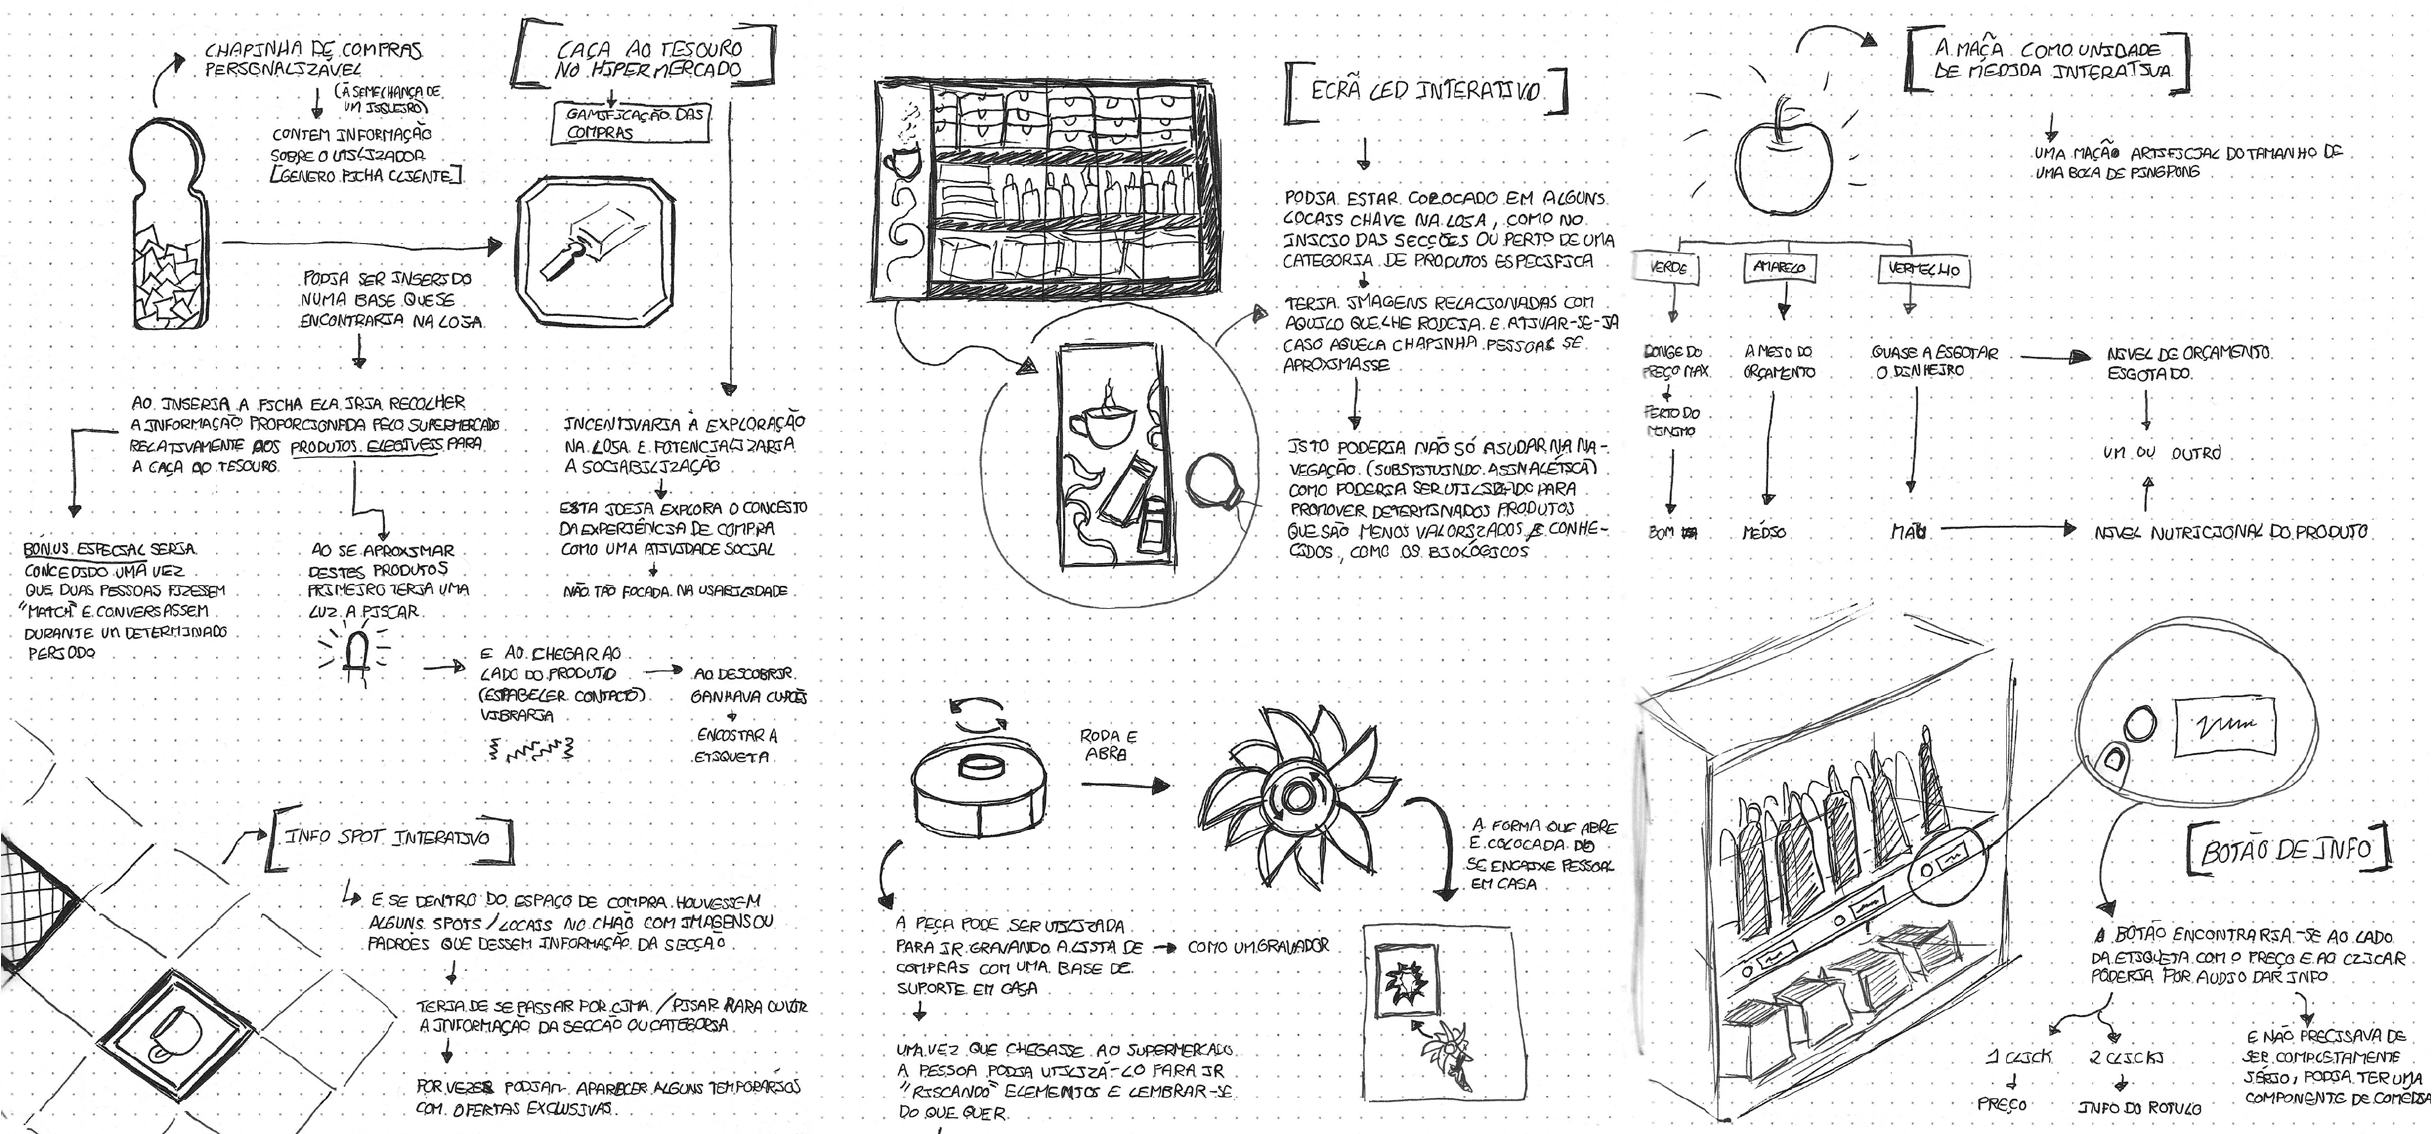 CHAPINHA DE COMPRAS
PERSONALIZÁVEL
(À SEMELHANÇA DE
UM ISQUEIRO)
CONTEM INFORMAÇÃO
SOBRE O UTILIZADOR
[GENERO FICHA CLIENTE]
PODIA SER INSERIDO
NUMA BASE QUE SE
ENCONTRARIA NA LOJA
AO INSERIR A FICHA ELA IRIA RECOLHER
A INFORMAÇÃO PROPORCIONADA PELO SUPERMERCADO
RELATIVAMENTE AOS PRODUTOS ELEGIVEIS PARA
A CAÇA AO TESOURO
BÓNUS ESPECIAL SERIA
CONCEDIDO UMA VEZ
QUE DUAS PESSOAS FIZESSEM
"MATCH" E CONVERSASSEM
DURANTE UM DETERMINADO
PERIODO
AO SE APROXIMAR
DESTES PRODUTOS
PRIMEIRO TERIA UMA
LUZ A PISCAR
E AO CHEGAR AO
LADO DO PRODUTO
(ESTABELER CONTACTO)
VIBRARIA
AO DESCOBRIR
GANHAVA CUPÕES
ENCOSTAR A
ETIQUETA
[CAÇA AO TESOURO
NO HIPERMERCADO]
GAMIFICAÇÃO DAS
COMPRAS
INCENTIVARIA À EXPLORAÇÃO
NA LOJA E POTENCIALIZARIA
A SOCIABILIZAÇÃO
ESTA IDEIA EXPLORA O CONCEITO
DA EXPERIÊNCIA DE COMPRA
COMO UMA ATIVIDADE SOCIAL
NÃO TÃO FOCADA NA USABILIDADE
[INFO SPOT INTERATIVO]
E SE DENTRO DO ESPAÇO DE COMPRA HOUVESSEM
ALGUNS SPOTS / LOCAIS NO CHÃO COM IMAGENS OU
PADRÕES QUE DESSEM INFORMAÇÃO DA SECÇÃO
TERIA DE SE PASSAR POR CIMA / PISAR PARA OUVIR
A INFORMAÇÃO DA SECÇÃO OU CATEGORIA
POR VEZES PODIAM APARECER ALGUNS TEMPORÁRIOS
COM OFERTAS EXCLUSIVAS.
[ECRÃ LED INTERATIVO]
PODIA ESTAR COLOCADO EM ALGUNS
LOCAIS CHAVE NA LOJA, COMO NO
INICIO DAS SECÇÕES OU PERTO DE UMA
CATEGORIA DE PRODUTOS ESPECIFICA
TERIA IMAGENS RELACIONADAS COM
AQUILO QUE LHE RODEIA E ATIVAR-SE-IA
CASO AQUELA CHAPINHA PESSOAL SE
APROXIMASSE
ISTO PODERIA NÃO SÓ AJUDAR NA NA-
VEGAÇÃO (SUBSTITUINDO A SINALÉTICA)
COMO PODERIA SER UTILIZADO PARA
PROMOVER DETERMINADOS PRODUTOS
QUE SÃO MENOS VALORIZADOS E CONHE-
CIDOS, COMO OS BIOLÓGICOS
RODA E
ABRE
A FORMA QUE ABRE
É COLOCADA NO
SE ENCAIXE PESSOAL
EM CASA
A PEÇA PODE SER UTILIZADA
PARA IR GRAVANDO A LISTA DE
COMPRAS COM UMA BASE DE
SUPORTE EM CASA
COMO UM GRAVADOR
UMA VEZ QUE CHEGASSE AO SUPERMERCADO
A PESSOA PODIA UTILIZÁ-LO PARA IR
"RISCANDO" ELEMENTOS E LEMBRAR-SE
DO QUE QUER
[A MAÇÃ COMO UNIDADE
DE MEDIDA INTERATIVA]
UMA MAÇÃ ARTIFICIAL DO TAMANHO DE
UMA BOLA DE PINGPONG
VERDE
AMARELO
VERMELHO
LONGE DO
PREÇO MAX.
PERTO DO
MINIMO
A MEIO DO
ORÇAMENTO
QUASE A ESGOTAR
O DINHEIRO
NIVEL DE ORÇAMENTO
ESGOTADO
UM OU OUTRO
BOM
MÉDIO
MAU
NIVEL NUTRICIONAL DO PRODUTO
[BOTÃO DE INFO]
O BOTÃO ENCONTRARIA-SE AO LADO
DA ETIQUETA COM O PREÇO E AO CLICAR
PODERIA POR AUDIO DAR INFO
1 CLICK
PREÇO
2 CLICKS
INFO DO ROTULO
E NÃO PRECISAVA DE
SER COMPLETAMENTE
SÉRIO, PODIA TER UMA
COMPONENTE DE COMÉDIA